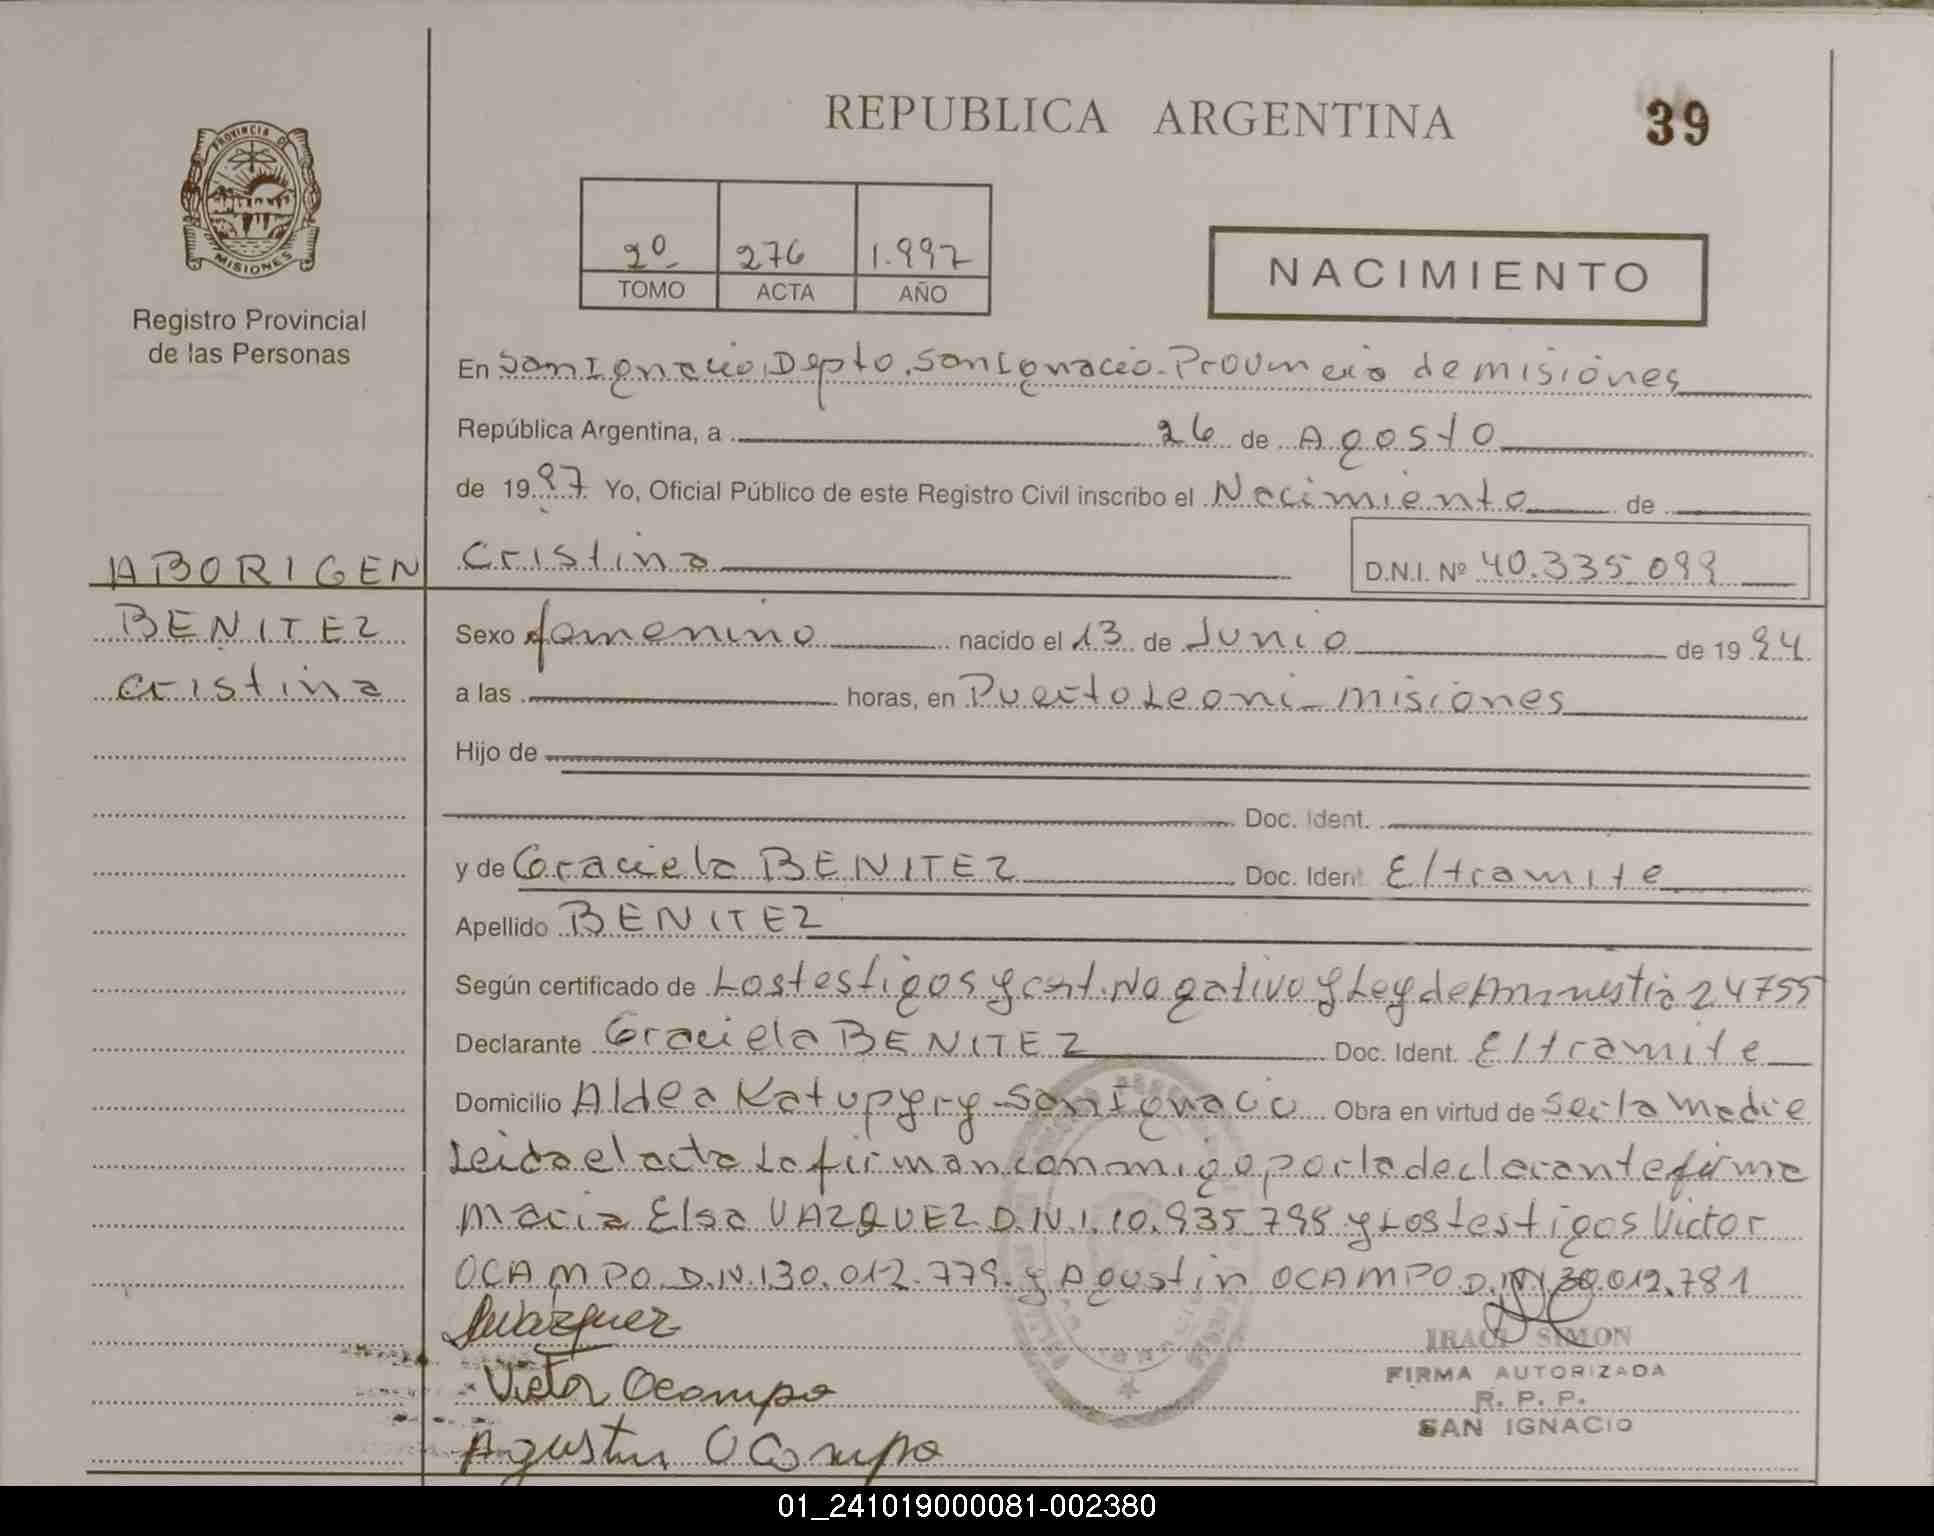 REPUBLICA ARGENTINA
39
PROVINCIA DE
MISIONES
Registro Provincial
de las Personas
2º 276 1.997
TOMO ACTA AÑO
NACIMIENTO
En San Ignacio, Depto. San Ignacio. Provincia de misiones
República Argentina, a 26 de Agosto
de 1997 Yo, Oficial Público de este Registro Civil inscribo el Nacimiento de
ABORIGEN
Cristina
D.N.I. Nº 40.335.099
BENITEZ
Cristina
Sexo femenino nacido el 13 de Junio de 1994
a las horas, en Puerto Leoni - misiones
Hijo de
Doc. Ident.
y de Graciela BENITEZ Doc. Ident. E/tramite
Apellido BENITEZ
Según certificado de Los testigos y cert. Negativo y Ley de 24755
Declarante Graciela BENITEZ Doc. Ident. E/tramite
Domicilio Aldea Katupyry - San Ignacio Obra en virtud de ser la madre
Leida el acta La firman conmigo por la declarante firma
Maria Elsa VAZQUEZ D.N.I. 10.935.795 y Los testigos Victor
OCAMPO D.N.I 30.012.779. y Agustin OCAMPO D.N.I 30.012.781
Victor Ocampo
Agustin Ocampo
IRACI SIMON
FIRMA AUTORIZADA
R. P. P.
SAN IGNACIO
01_241019000081-002380